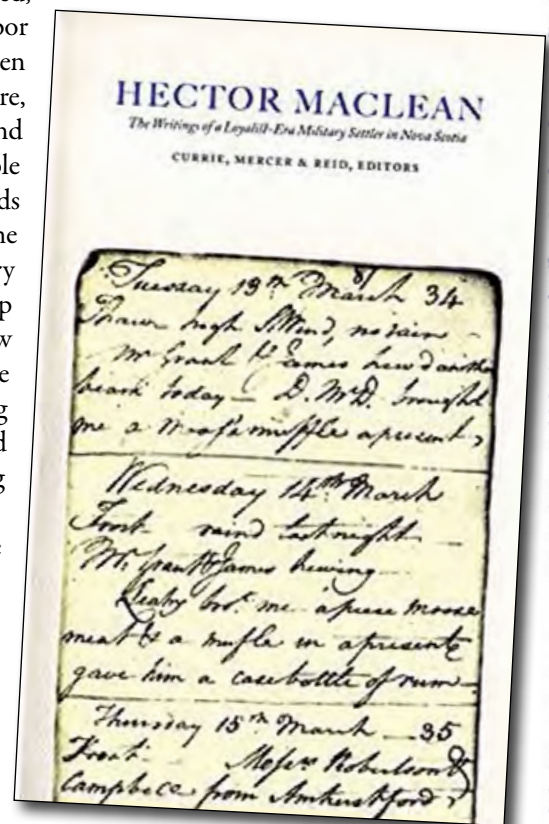 ed,
oor
en
re,
nd
ole
ds
ne
ry
p
w
e
g
d
g
e
HECTOR MACLEAN
The Writings of a Loyalist-Era Military Settler in Nova Scotia
CURRIE, MERCER & REID, EDITORS
Tuesday 13th March 34
Thaw high SWind, no rain
Mr Grant & James hew'd another
beam today — D. McD. brought
me a moose muffle a present,
Wednesday 14th March
Frost rain'd last night
Mr Grant & James hewing
brot. me a piece moose
meat & a mufle in a present
gave him a case bottle of rum
Thursday 15th March 35
Frost Messrs Robertson &
Campbell from Amherst ford